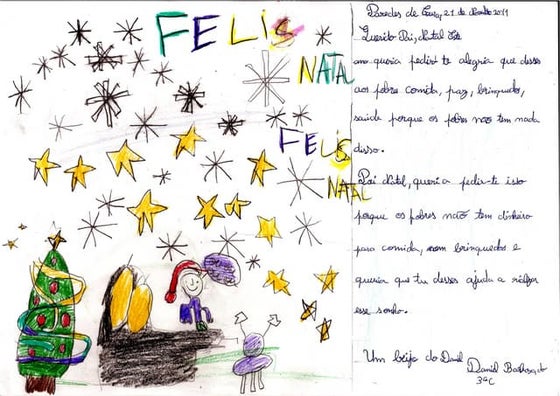 FELIS
NATAL
FELIS
NATAL
Paredes de Coura, 21 de 2011
Querido Pai Natal Este
ano queria pedir-te alegria que desses
aos pobres comida, paz, brinquedos,
saúde porque os pobres não tem nada
disso.
Pai Natal, queria pedir-te isto
porque os pobres não tem dinheiro
para comida, nem brinquedos e
queria que tu desses ajuda a realizar
esse sonho.
Um beijo do Daniel
Daniel
3ºC